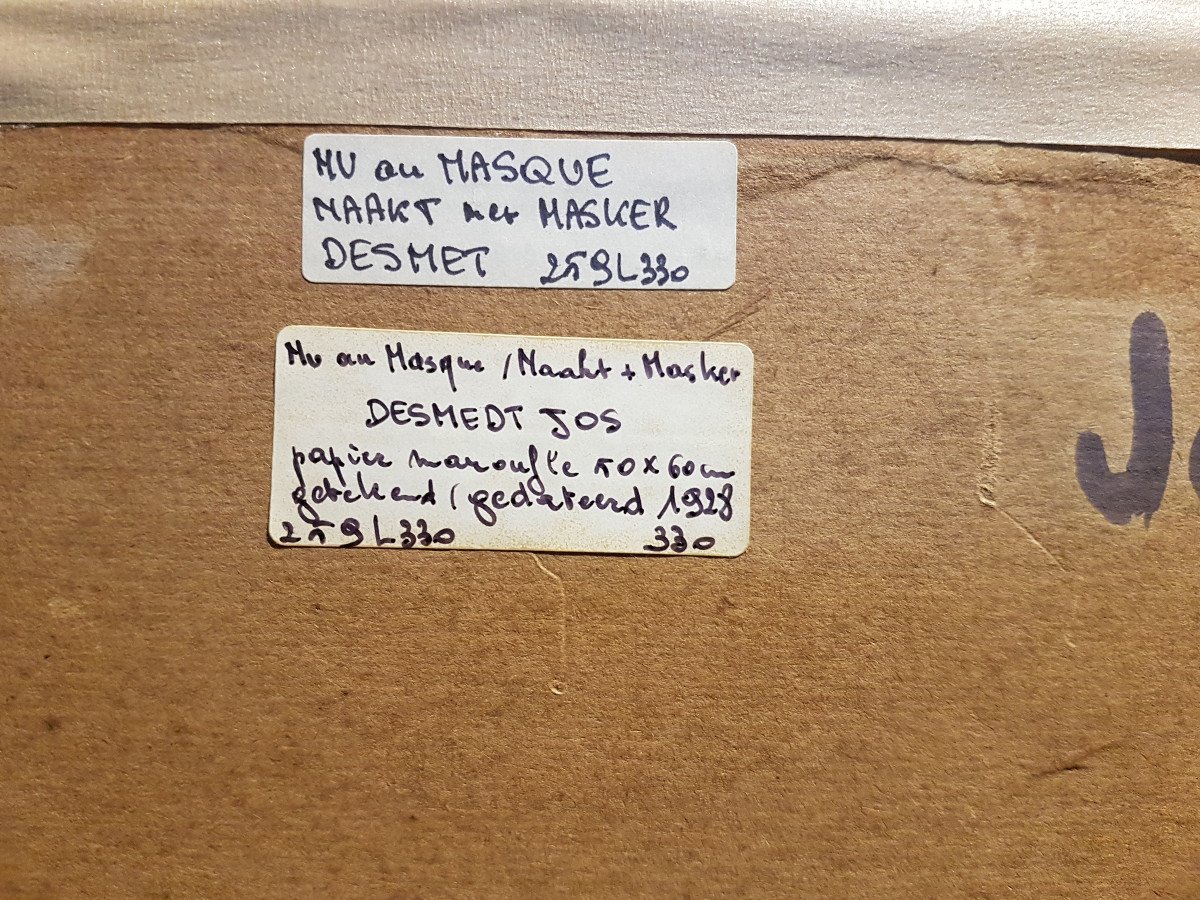 NU au MASQUE
NAAKT met MASKER
DESMET 259L330
Nu au Masque / Naakt + Masker
DESMEDT JOS
papier marouflé 50 x 60 cm
getekend / gedateerd 1928
259L330 330
J